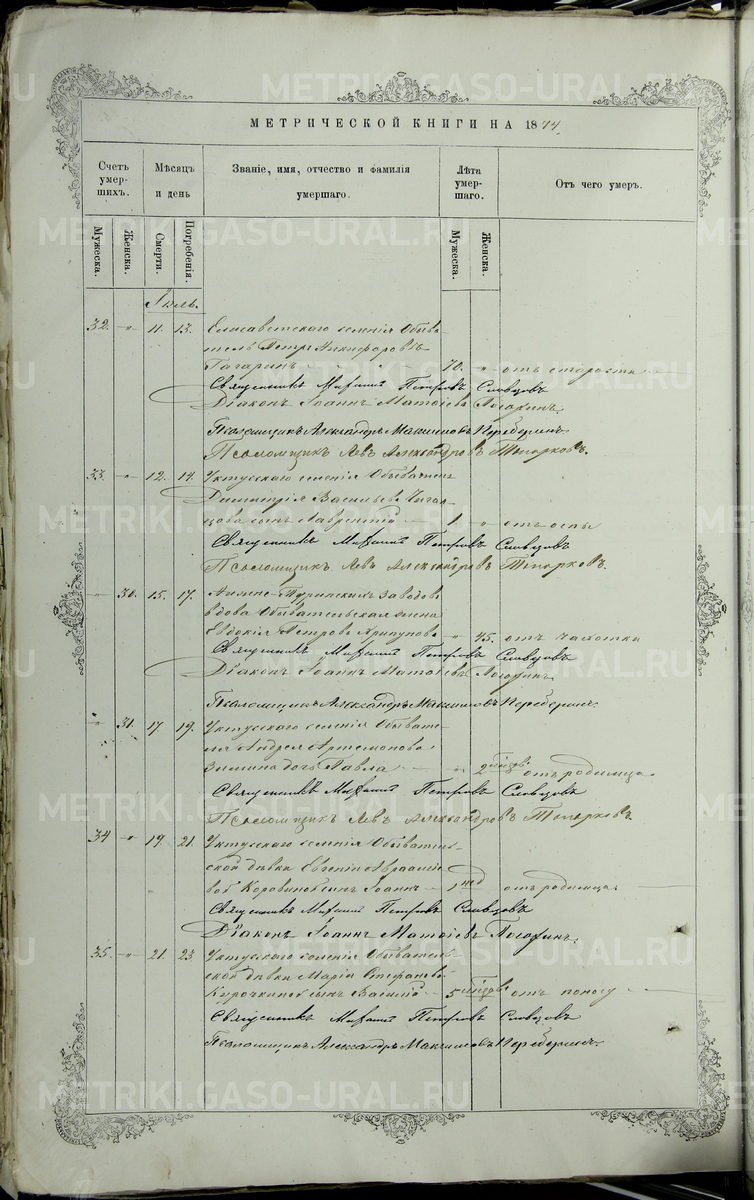 METRIKI.GASO-URAL.RU
МЕТРИЧЕСКОЙ КНИГИ НА 1874.
Счетъ умерших. Мѣсяцъ и день Званіе, имя, отчество и фамилія умершаго. Лѣта умершаго. Отъ чего умеръ.
Мужеска. Женска. Смерти. Погребенія. Мужеска. Женска.
Іюль.
32. " 11. 13. Елисаветскаго селенія Обыва
тель Петръ Никифоровъ
Гагаринъ 70. " отъ старости
Священникъ Михаилъ Петровъ Словцовъ
Діаконъ Іоаннъ Матѳіевъ
Псаломщикъ Александръ Максимовъ
Псаломщикъ Левъ Александровъ Топорковъ.
33. " 12. 14. Уктусскаго селенія Обывателя
Димитрія Васильева
сынъ Лаврентій 1 " отъ оспы
Священникъ Михаилъ Петровъ Словцовъ
Псаломщикъ Левъ Александровъ Топорковъ.
" 30. 15. 17. Нижне-Туринскихъ заводовъ
вдова Обывательская жена
Евдокія Петрова " 45. отъ чахотки
Священникъ Михаилъ Петровъ Словцовъ
Діаконъ Іоаннъ Матѳіевъ
Псаломщикъ Александръ Максимовъ
" 31. 17. 19. Уктусскаго селенія Обывате
ля Андрея Артемонова
Зимина дочь Павла " 2 отъ родимца
Священникъ Михаилъ Петровъ Словцовъ
Псаломщикъ Левъ Александровъ Топорковъ
34 " 19. 21. Уктусскаго селенія Обыватель
ской дѣвки Евгеніи Аврааміе
вой Коровиной сынъ Іоаннъ 1 нед отъ родимца
Священникъ Михаилъ Петровъ Словцовъ
Діаконъ Іоаннъ Матѳіевъ
35. " 21. 23 Уктусскаго селенія Обыватель
ской дѣвки Маріи Стефановой
сынъ Василій 5 отъ поносу
Священникъ Михаилъ Петровъ Словцовъ
Псаломщикъ Александръ Максимовъ